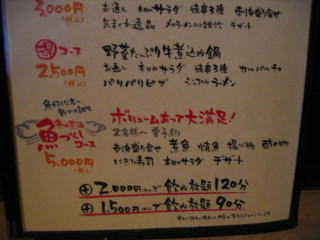 3,000円
(税込)
お通し 本日サラダ 焼鳥3種 刺身盛合せ
デザート
湯コース
2,500円
(税込)
野菜たっぷり牛煮込み鍋
お通し 本日サラダ 焼鳥3種 カルパッチョ
パリパリピザ ラーメン
魚づくし
コース
5,000円
(税込)
ボリュームあって大満足!
2名様〜 要予約
刺身盛合せ 煮魚 焼魚 揚げ物 酢の物
にぎり寿司 本日サラダ デザート
+2,000円で飲み放題120分
+1,500円で飲み放題90分